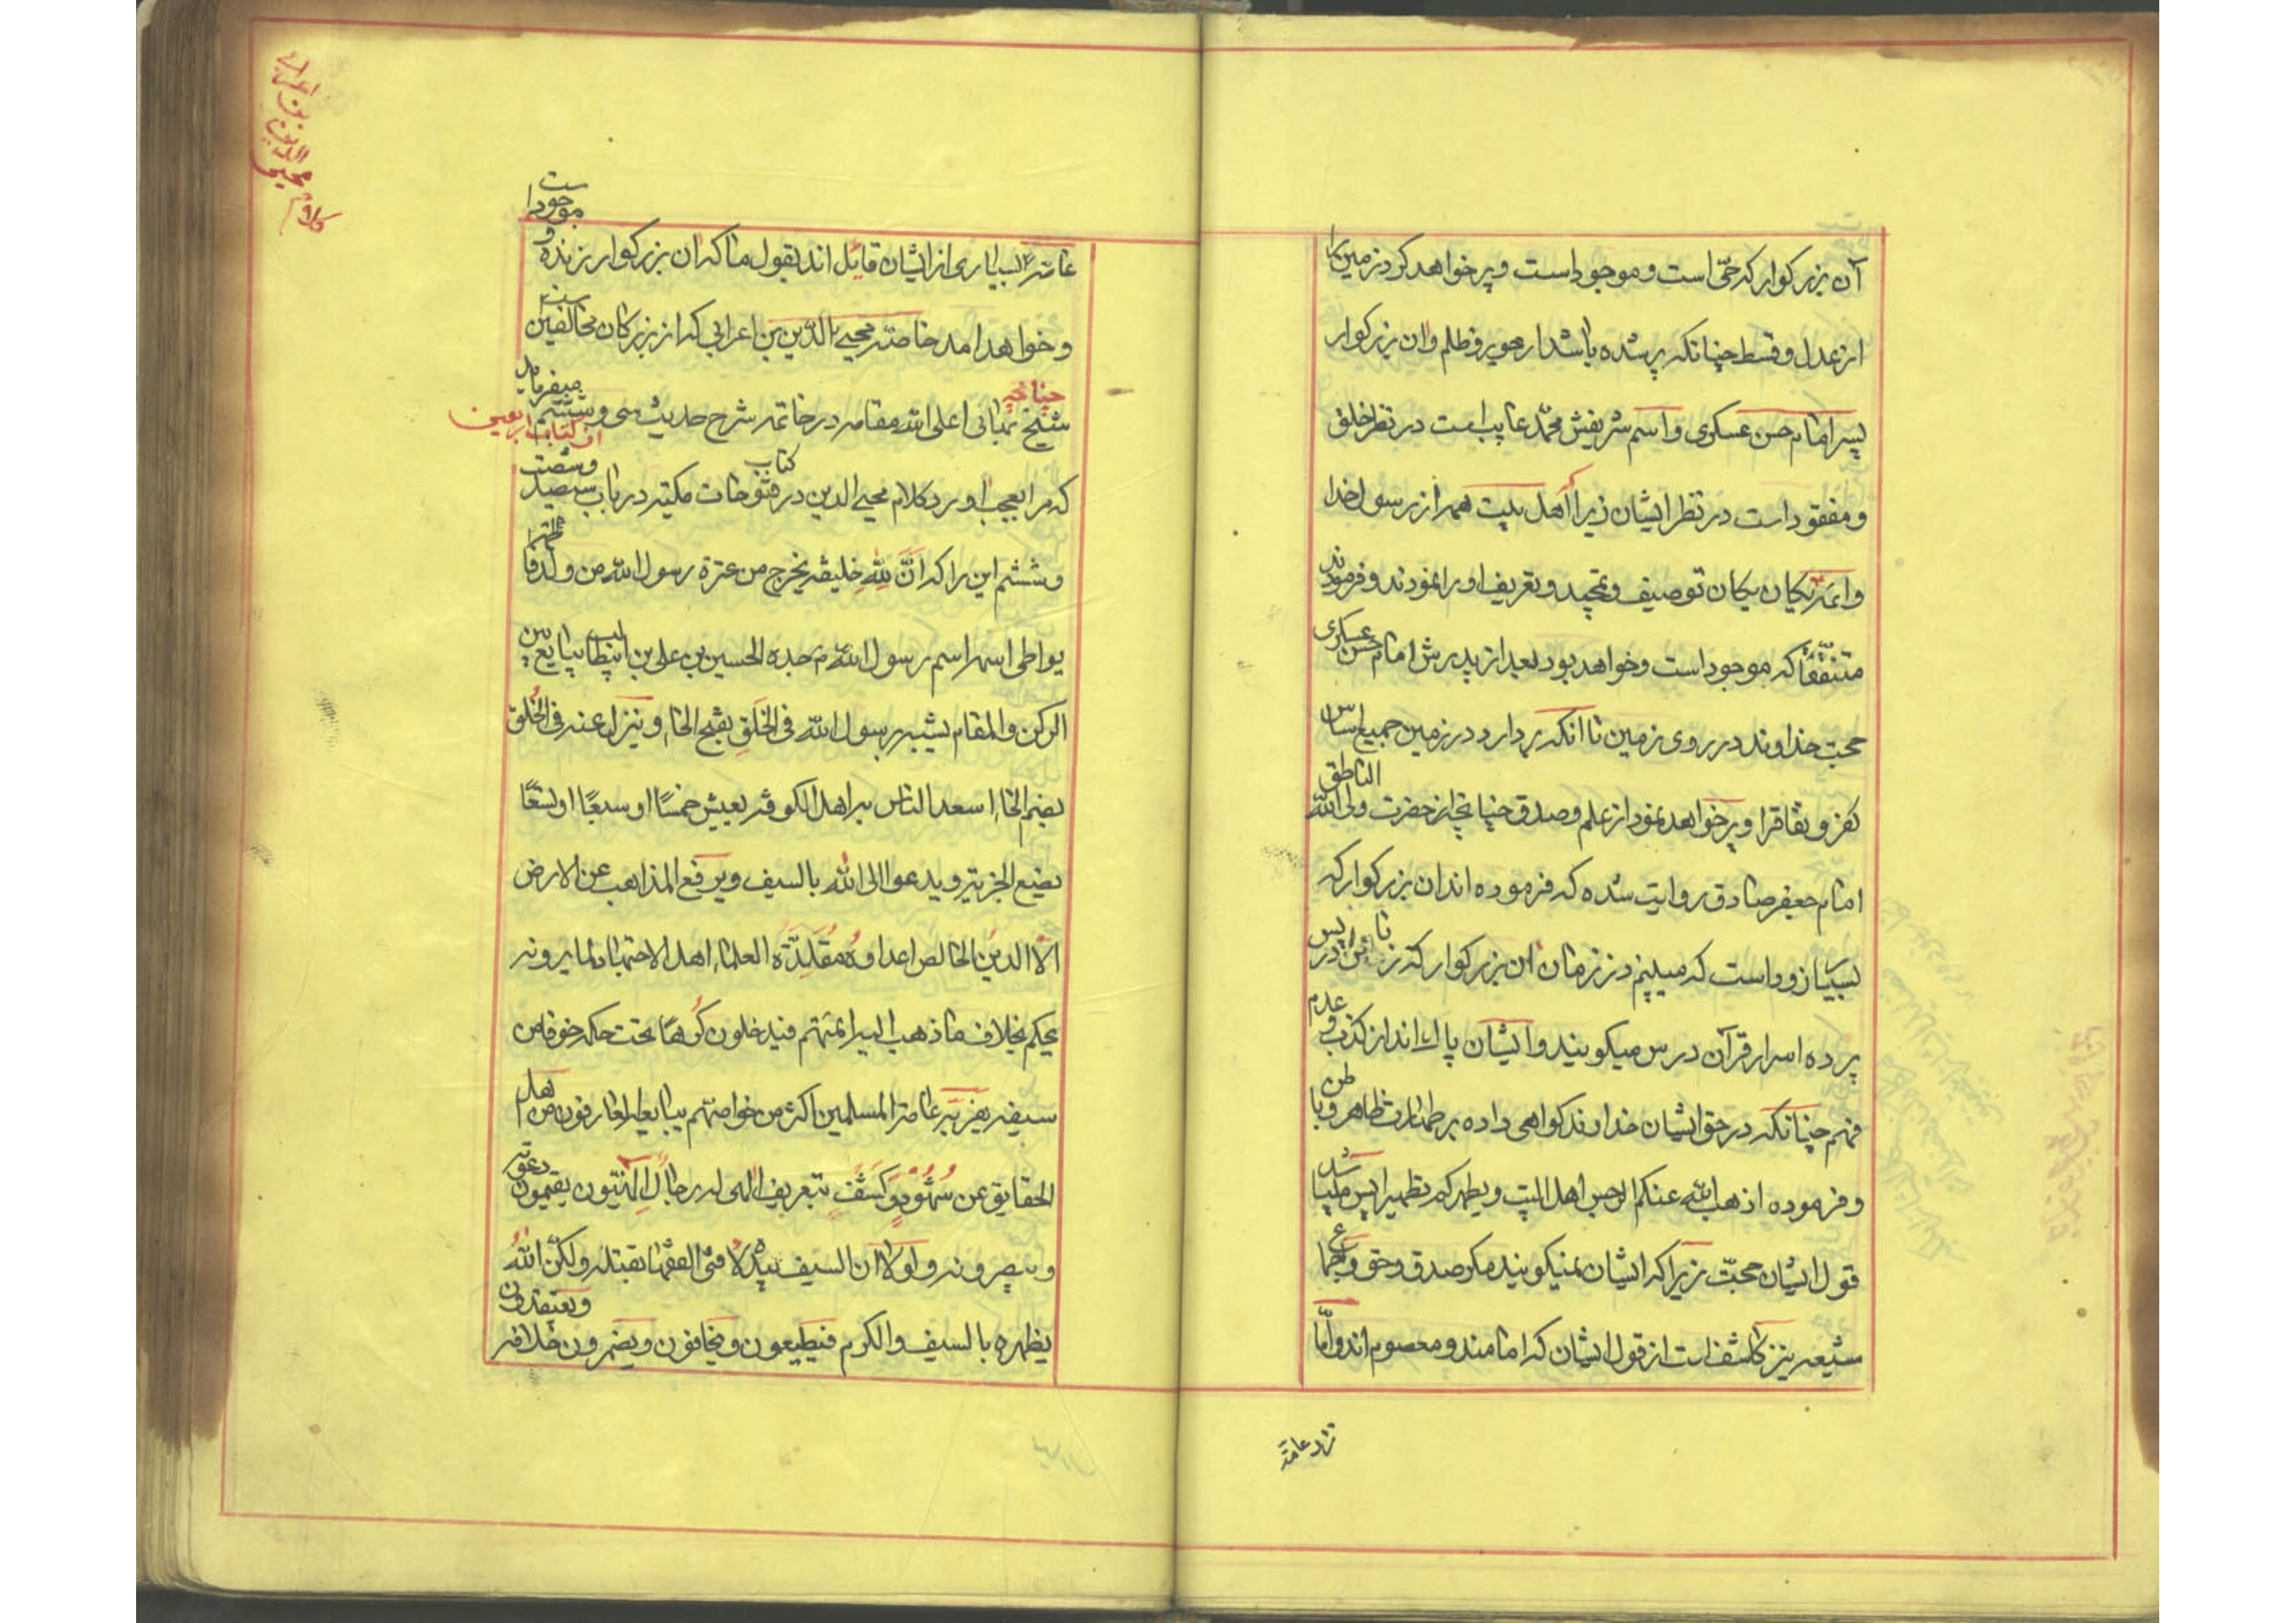 آن بزرکوار که حیّ است و موجود است و پر خواهد کرد زمین را
از عدل و قسط چنانکه پر شده باشد از جور و ظلم و ان بزرکوار
پسر امام حسن عسکری و اسم شریفش محمّد غایب است در نظر خلق
و مفقود است در نظر ایشان زیرا اهل بیت همه از رسول خدا
و ائمّه یکان یکان توصیف و تمجید و تعریف او را نمودند و فرمودند
متفقّاً که موجود است و خواهد بود بعد از پدرش امام حسن عسکری
حجت خداوند در روی زمین تا انکه بردارد در زمین جمیع اساس
کفر و نفاق را و پر خواهد نمود از علم و صدق چنانچه از حضرت ولی الله الناطق
امام جعفر صادق روایت شده که فرموده اند ان بزرکوار که
بسیار زود است که میبینم در زمان ان بزرکوار که زنان در پس
پرده اسرار قرآن درس میکویند و ایشان پاک اند از کذب و عدم
فهم چنانکه در حق ایشان خداوند کواهی داده بر طهارت ظاهر و باطن
و فرموده اذهب الله عنکم الرجس اهل البیت و یطهرکم تطهیرا پس میباشد
قول ایشان حجتّ زیرا که ایشان نمیکویند مکر صدق و حق و اجماع
شیعه نیز کاشف است از قول ایشان که امامند و معصوم اند و امّا
نزد عامّه
کلام محیی الدین بن اعرابی
عامّه بسیاری از ایشان قائل اند بقول ما که ان بزرکوار زنده و موجود است
و خواهد امد خاصّه محیی الدّین بن اعرابی که از بزرکان مخالفین است
چنانچه شیخ بهائی اعلی الله مقامه در خاتمه شرح حدیث سی و ششم از کتاب اربعین میفرماید
که مرا بعجب اورد کلام محیی الدین در کتاب فتوحات مکیه در باب سیصد و شصت
و ششم این را که انَّ لِلّهِ خلیفه یخرج من عترة رسول الله من ولد فاطمة
یواطی اسمه اسم رسول الله جده الحسین بن علی بن ابیطالب یبایع بین
الرکن و المقام یشبه رسول الله فی الخَلقِ بفتح الخاء و ینزل عنه فی الخُلق
بضم الخاء اسعد الناس به اهل الکوفه یعیش خمسًا او سبعًا او تسعًا
یضع الجزیه و یدعوا الی الله بالسیف و یرفع المذاهب عن الارض
الّا الدین الخالص اعداوه مقلدة العلماء اهل الاجتهاد لما یرونه
یحکم بخلاف ما ذهب الیه ائمتهم فیدخلون کرهًا تحت حکمه خوفا من
سیفه یفرح به عامة المسلمین اکثر من خواصهم یبایعه العارفون من اهل
الحقایق عن شهود و کشف بتعریف الهی له رجال الهیون یقیمون دعوته
و ینصرونه و لو لا ان السیف بیده لا فتی الفقها بقتله و لکن الله
یظهره بالسیف و الکرم فیطیعون و یخافون و یضمرون خلافه و یعتقدون